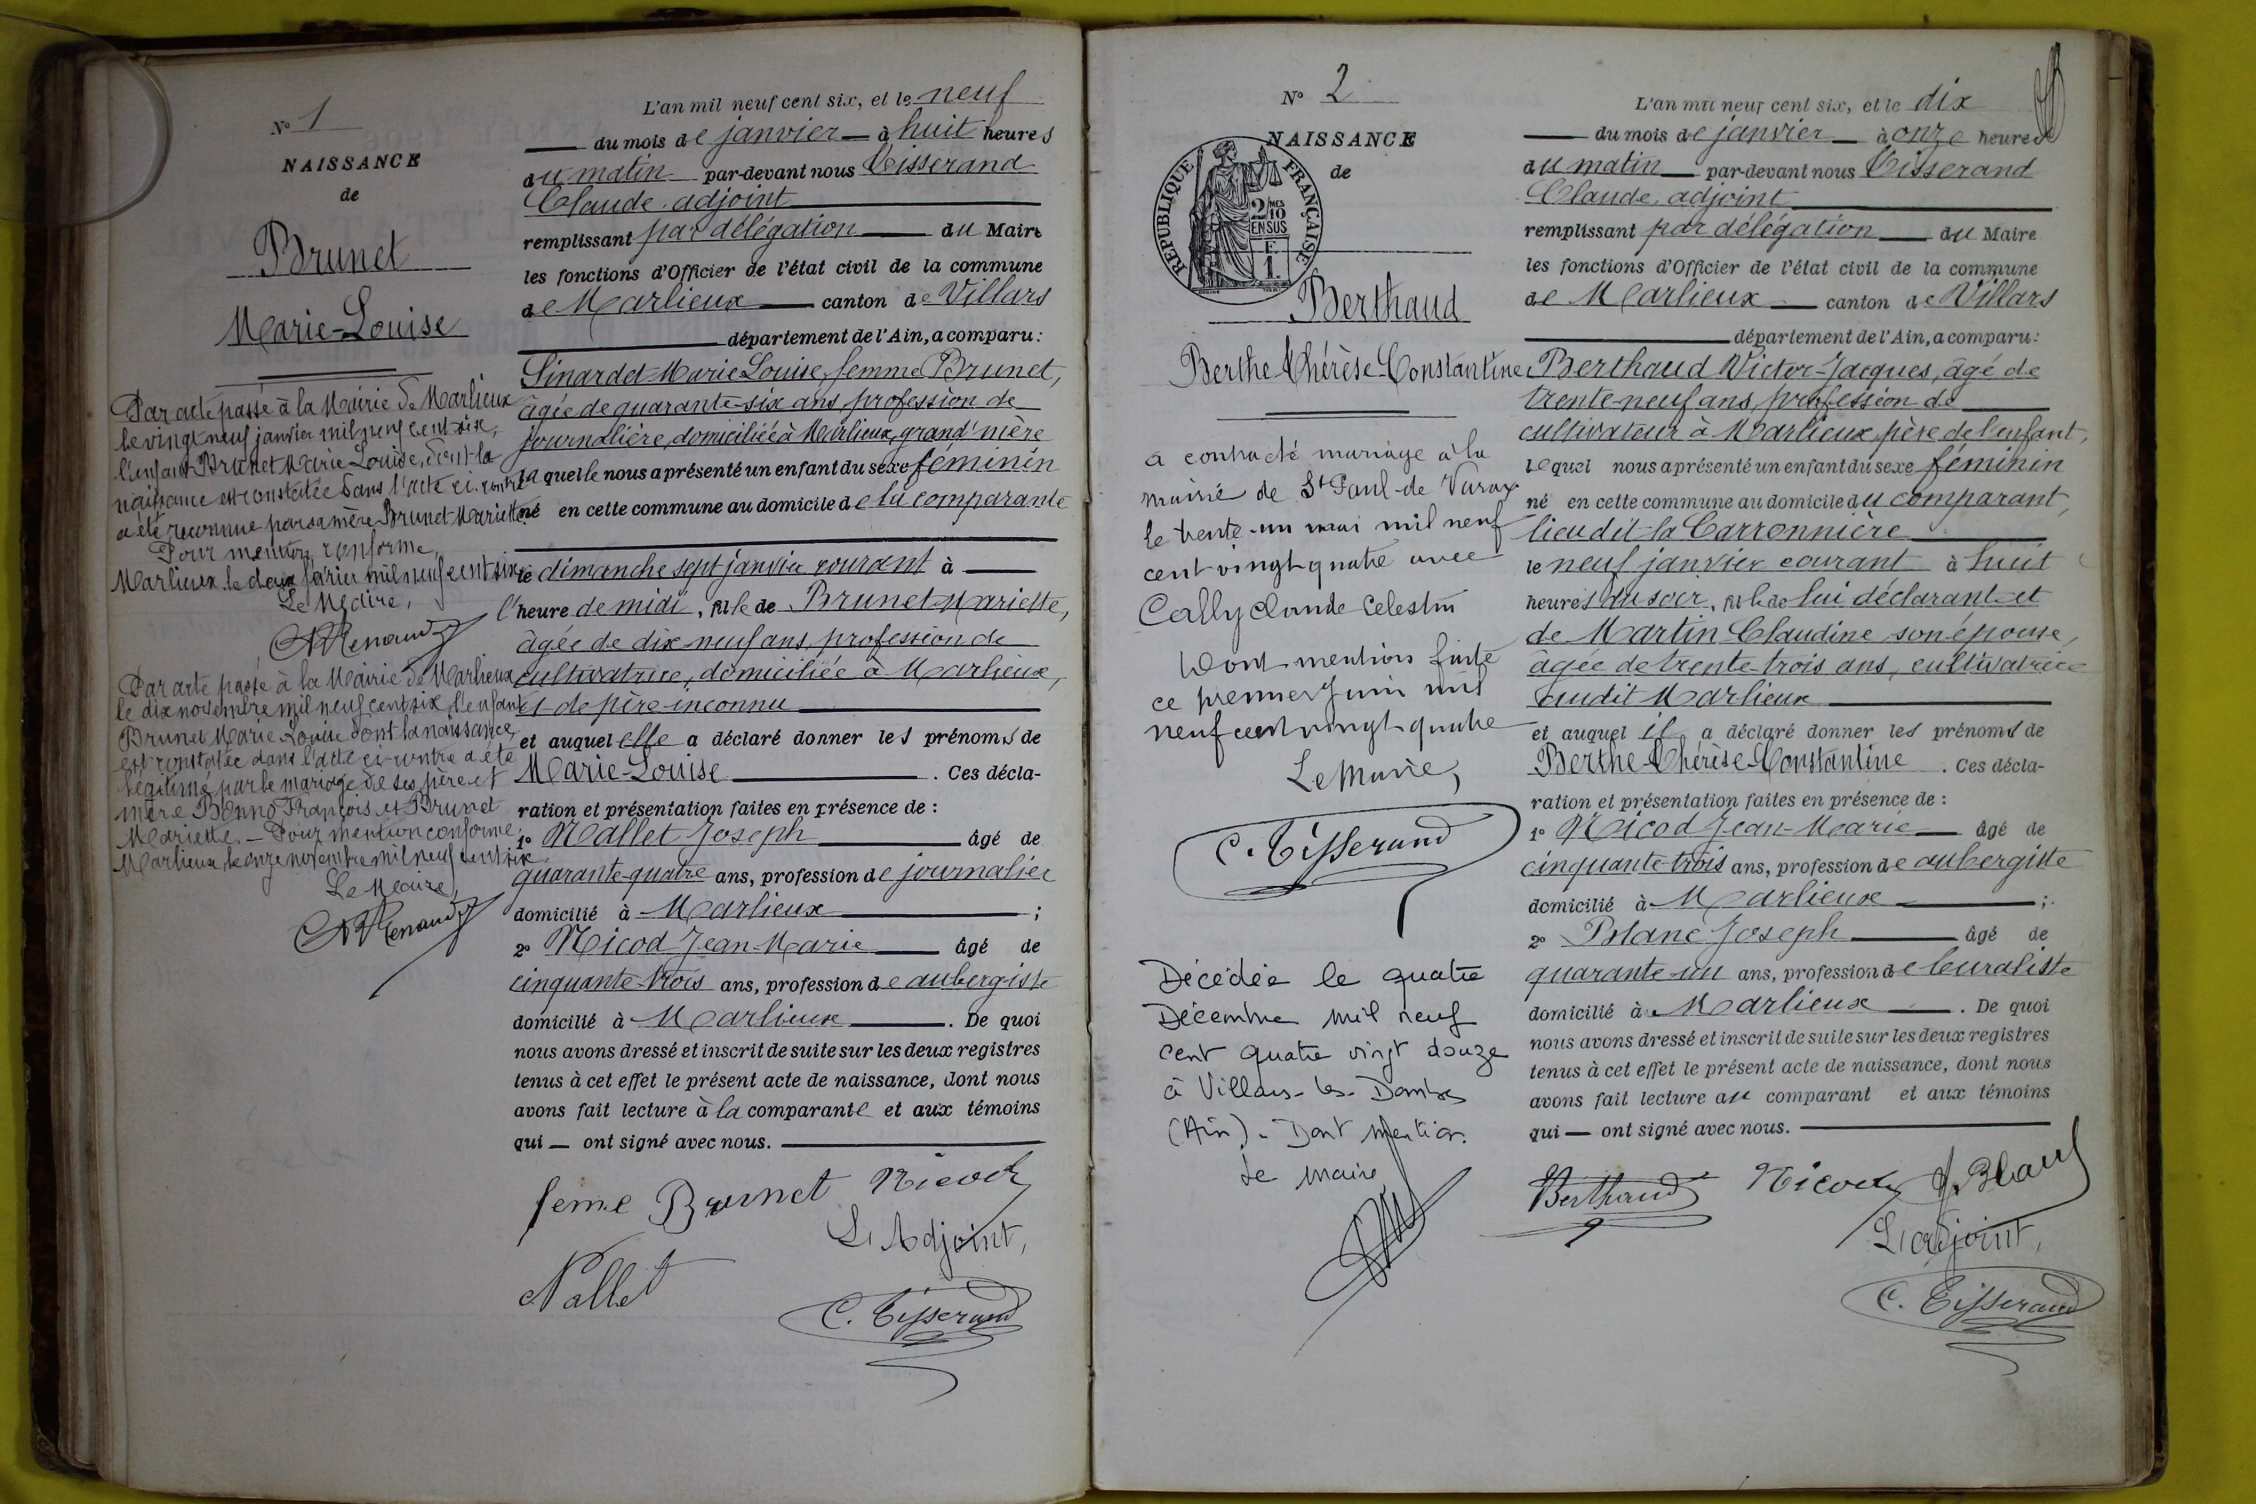 N° 1
NAISSANCE
de
Brunet
Marie-Louise
Par acte passé à la Mairie de Marlieux
le vingt neuf janvier mil neuf cent six,
l'enfant Brunet Marie Louise, dont la
naissance est constatée dans l'acte ci-contre
a été reconnue par sa mère Brunet Mariette.
Pour mention conforme,
Marlieux le deux février mil neuf cent six
Le Maire,
Par acte passé à la Mairie de Marlieux
le dix novembre mil neuf cent six, l'enfant
Brunet Marie Louise dont la naissance
est constatée dans l'acte ci-contre a été
légitimé par le mariage de ses père et
mère Bonno François et Brunet
Mariette. — Pour mention conforme,
Marlieux, le onze novembre mil neuf cent six
Le Maire,
L'an mil neuf cent six, et le neuf
du mois de janvier à huit heures
du matin par-devant nous Tisserand
Claude, adjoint
remplissant par délégation du Maire
les fonctions d'Officier de l'état civil de la commune
de Marlieux canton de Villars
département de l'Ain, a comparu:
Sinardet Marie Louise, femme Brunet,
âgée de quarante-six ans, profession de
journalière, domiciliée à Marlieux, grand'mère
laquelle nous a présenté un enfant du sexe féminin
né en cette commune au domicile de la comparante
le dimanche sept janvier courant à
l'heure de midi, fille de Brunet Mariette,
âgée de dix-neuf ans, profession de
cultivatrice, domiciliée à Marlieux,
et de père inconnu
et auquel elle a déclaré donner les prénoms de
Marie-Louise. Ces décla-
ration et présentation faites en présence de:
1° Nallet Joseph âgé de
quarante-quatre ans, profession de journalier
domicilié à Marlieux;
2° Nicod Jean-Marie âgé de
cinquante-trois ans, profession de aubergiste
domicilié à Marlieux. De quoi
nous avons dressé et inscrit de suite sur les deux registres
tenus à cet effet le présent acte de naissance, dont nous
avons fait lecture à la comparante et aux témoins
qui — ont signé avec nous.
feme Brunet Nicod
L'Adjoint,
Nallet
C. Tisserand
N° 2
NAISSANCE
de
RÉPUBLIQUE FRANÇAISE
2/10 MES EN SUS
F
1
Berthaud
Berthe-Thérèse-Constantine
a contracté mariage à la
mairie de St Paul-de Varax
le trente-un mai mil neuf
cent vingt-quatre avec
Cally Claude Celestin
Dont mention faite
ce premier juin mil
neuf cent vingt-quatre
Le Maire,
C. Tisserand
Décédée le quatre
Décembre mil neuf
cent quatre vingt douze
à Villars-les-Dombes
(Ain). Dont mention.
Le Maire
L'an mil neuf cent six, et le dix
du mois de janvier à onze heures
du matin par-devant nous Tisserand
Claude, adjoint
remplissant par délégation du Maire
les fonctions d'Officier de l'état civil de la commune
de Marlieux canton de Villars
département de l'Ain, a comparu:
Berthaud Victor-Jacques, âgé de
trente-neuf ans, profession de
cultivateur à Marlieux, père de l'enfant,
lequel nous a présenté un enfant du sexe féminin
né en cette commune au domicile du comparant,
lieu dit la Carronnière
le neuf janvier courant à huit
heures du soir, fille de lui déclarant et
de Martin Claudine, son épouse,
âgée de trente-trois ans, cultivatrice
audit Marlieux
et auquel il a déclaré donner les prénoms de
Berthe-Thérèse-Constantine. Ces décla-
ration et présentation faites en présence de:
1° Nicod Jean-Marie âgé de
cinquante-trois ans, profession de aubergiste
domicilié à Marlieux;
2° Blanc Joseph âgé de
quarante-un ans, profession de buraliste
domicilié à Marlieux. De quoi
nous avons dressé et inscrit de suite sur les deux registres
tenus à cet effet le présent acte de naissance, dont nous
avons fait lecture au comparant et aux témoins
qui — ont signé avec nous.
Berthaud Nicod J. Blanc
L'adjoint,
C. Tisserand